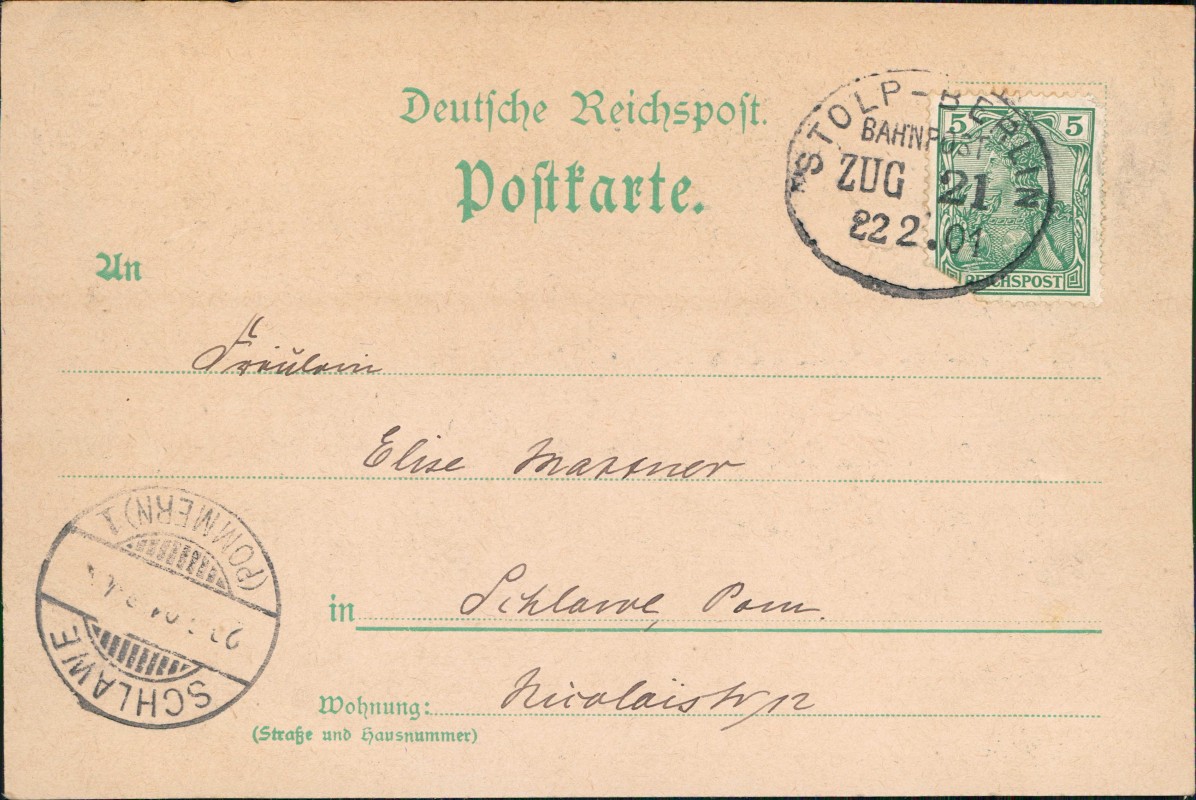 Deutsche Reichspost.
Postkarte.
STOLP-BERLIN
BAHNPOST
ZUG 21
22 2. 01
5 5
REICHSPOST
An
Fräulein
Elise
in Schlawe, Pom.
Wohnung: Nicolaistr 12
(Straße und Hausnummer)
SCHLAWE
(POMMERN) 1